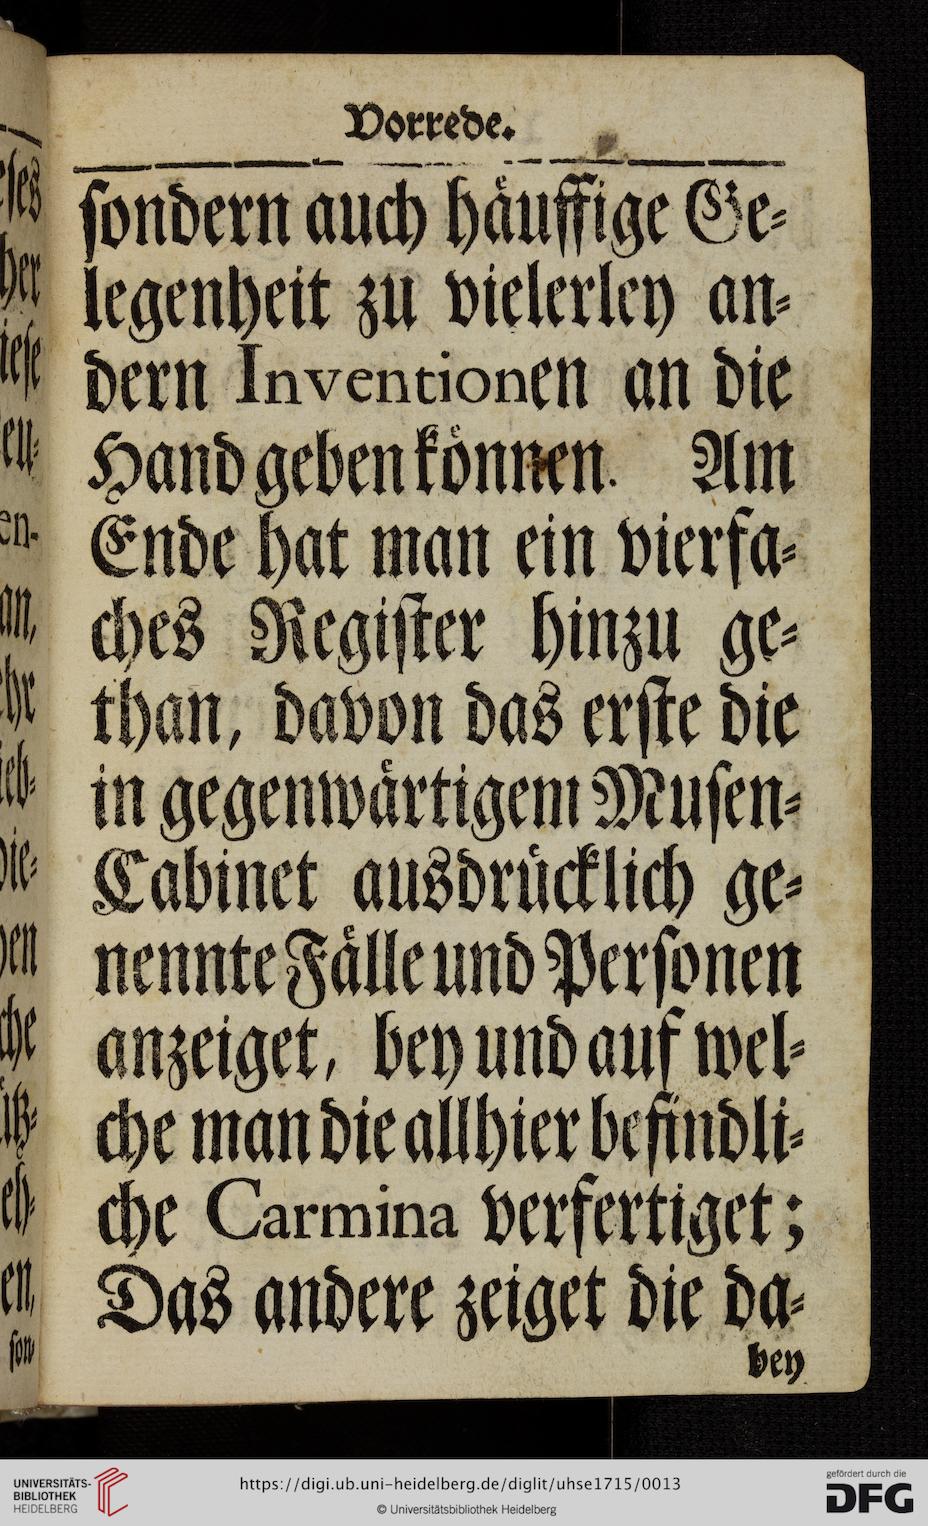 Vorrede.
ſondern auch häuffige Ge⸗
legenheit zu vielerley an⸗
dern Inventionen an die
Hand geben können. Am
Ende hat man ein vierfa⸗
ches Regiſter hinzu ge⸗
than, davon das erſte die
in gegenwärtigem Muſen⸗
Cabinet ausdrücklich ge⸗
nennte Fälle und Perſonen
anzeiget, bey und auf wel⸗
che man die allhier befindli⸗
che Carmina verfertiget;
Das andere zeiget die da⸗
bey
UNIVERSITÄTS-
BIBLIOTHEK
HEIDELBERG
https://digi.ub.uni-heidelberg.de/diglit/uhse1715/0013
© Universitätsbibliothek Heidelberg
gefördert durch die
DFG